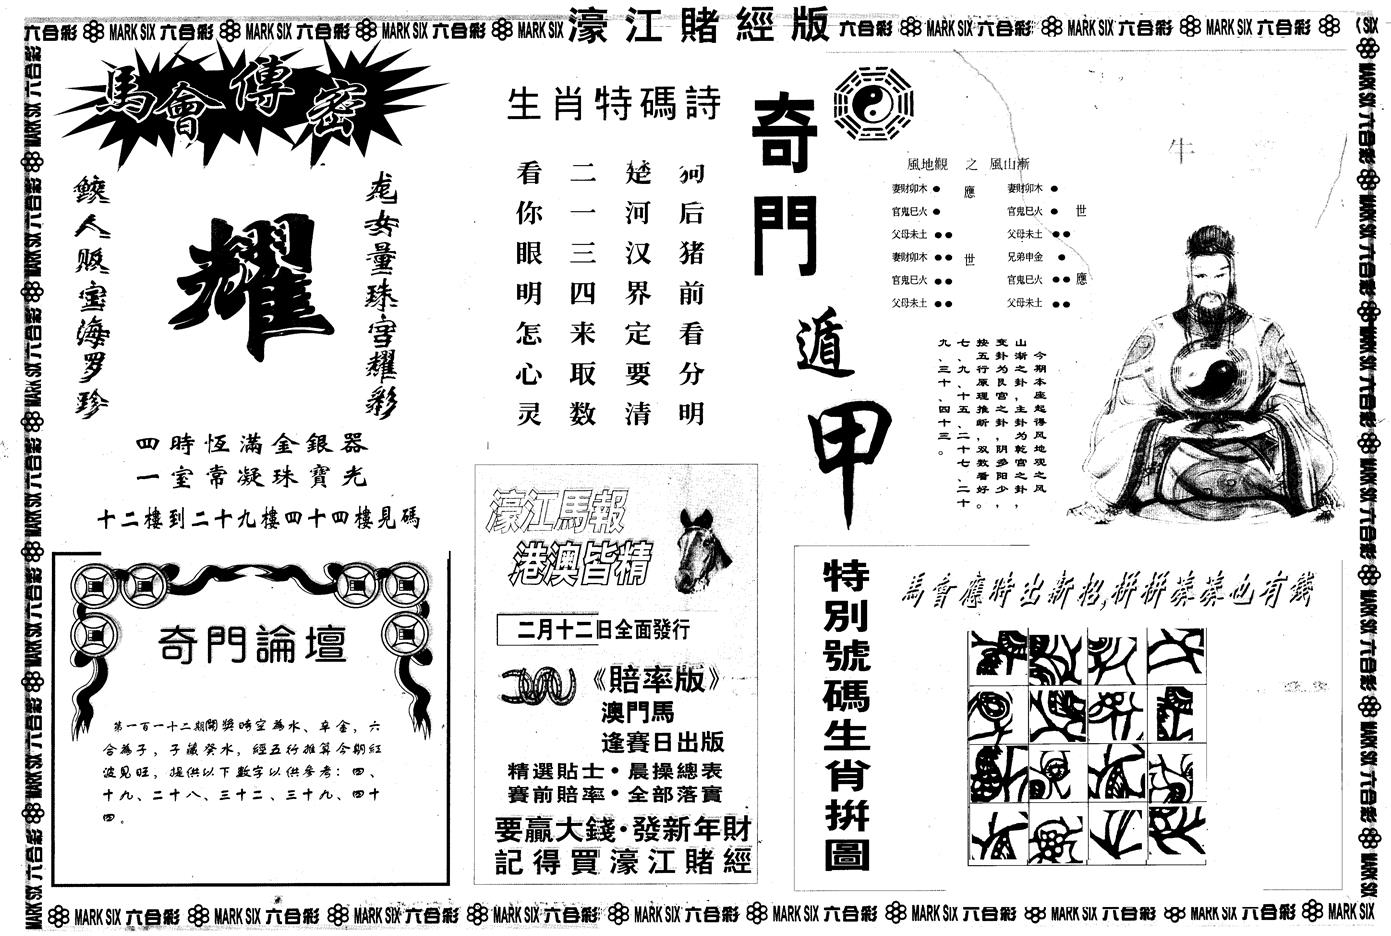 六合彩 MARK SIX 六合彩 MARK SIX 六合彩 MARK SIX 六合彩 MARK SIX 濠江賭經版 六合彩 MARK SIX 六合彩 MARK SIX 六合彩 MARK SIX 六合彩
馬會傳密
龙女量珠宫耀彩
耀
鲛人贩宝海罗珍
四時恆滿金銀器
一室常凝珠寶光
十二樓到二十九樓四十四樓見碼
奇門論壇
第一百一十二期開獎時空為水、辛金，六
合為子，子藏癸水，經五行推算今期紅
波見旺，提供以下數字以供參考：四、
十九、二十八、三十二、三十九、四十
四。
生肖特碼詩
狗后猪前看分明
楚河汉界定要清
二一三四来取数
看你眼明怎心灵
濠江馬報
港澳皆精
二月十二日全面發行
《賠率版》
澳門馬
逢賽日出版
精選貼士•晨操總表
賽前賠率•全部落實
要贏大錢·發新年財
記得買濠江賭經
奇門遁甲
牛
風地觀 之 風山漸
妻財卯木 應 妻財卯木
官鬼巳火 官鬼巳火 世
父母未土 父母未土
妻財卯木 世 兄弟申金
官鬼巳火 官鬼巳火 應
父母未土 父母未土
今期本座起得风地观之风
山渐之卦，主卦为乾宫之卦，
变卦为艮宫之卦，阴多阳少，
按五行原理推断，双数看好。
七、九、十五、二十七、二十
九、三十、四十三。
特別號碼生肖拼圖
馬會應時出新招，拼拼湊湊也有錢
MARK SIX 六合彩 MARK SIX 六合彩 MARK SIX 六合彩 MARK SIX 六合彩 MARK SIX 六合彩 MARK SIX 六合彩 MARK SIX 六合彩 MARK SIX 六合彩 MARK SIX 六合彩 MARK SIX